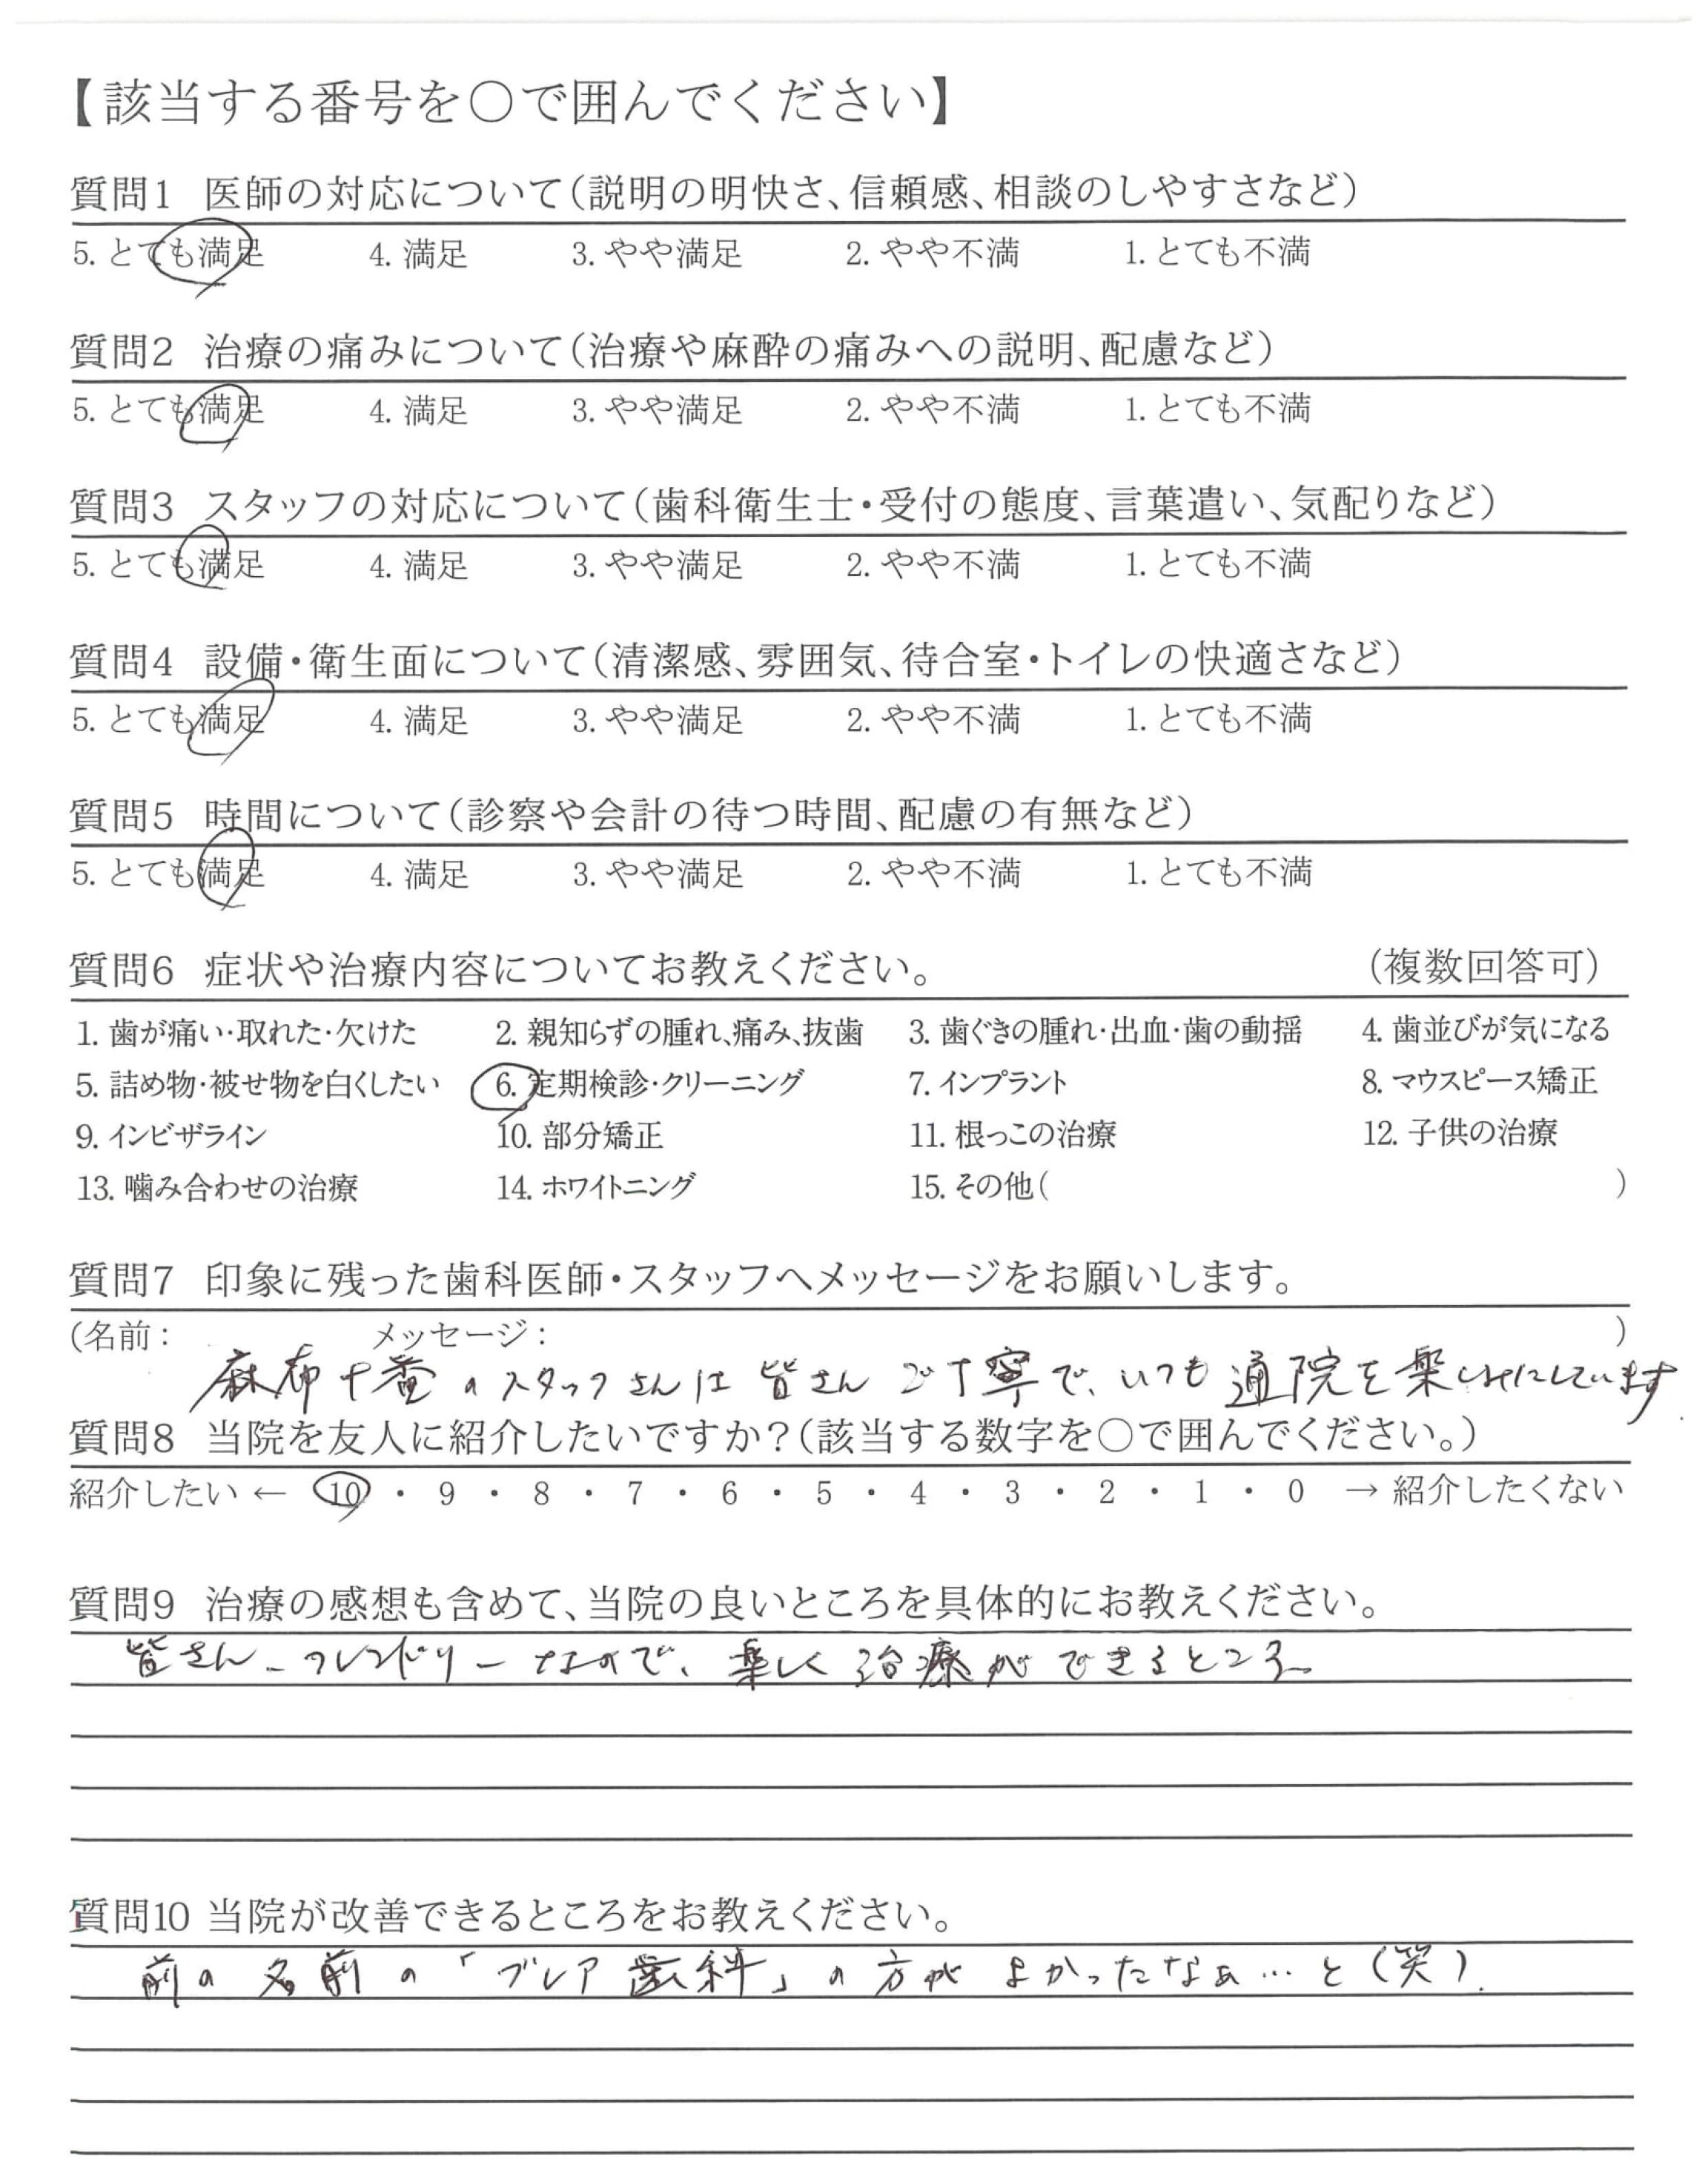 【該当する番号を○で囲んでください】
質問1 医師の対応について(説明の明快さ、信頼感、相談のしやすさなど)
5. とても満足 4. 満足 3. やや満足 2. やや不満 1. とても不満
質問2 治療の痛みについて(治療や麻酔の痛みへの説明、配慮など)
5. とても満足 4. 満足 3. やや満足 2. やや不満 1. とても不満
質問3 スタッフの対応について(歯科衛生士・受付の態度、言葉遣い、気配りなど)
5. とても満足 4. 満足 3. やや満足 2. やや不満 1. とても不満
質問4 設備・衛生面について(清潔感、雰囲気、待合室・トイレの快適さなど)
5. とても満足 4. 満足 3. やや満足 2. やや不満 1. とても不満
質問5 時間について(診察や会計の待つ時間、配慮の有無など)
5. とても満足 4. 満足 3. やや満足 2. やや不満 1. とても不満
質問6 症状や治療内容についてお教えください。 (複数回答可)
1. 歯が痛い・取れた・欠けた 2. 親知らずの腫れ、痛み、抜歯 3. 歯ぐきの腫れ・出血・歯の動揺 4. 歯並びが気になる
5. 詰め物・被せ物を白くしたい 6. 定期検診・クリーニング 7. インプラント 8. マウスピース矯正
9. インビザライン 10. 部分矯正 11. 根っこの治療 12. 子供の治療
13. 噛み合わせの治療 14. ホワイトニング 15. その他( )
質問7 印象に残った歯科医師・スタッフへメッセージをお願いします。
(名前: メッセージ: )
麻布十番のスタッフさんは皆さんご丁寧で、いつも通院を楽しみにしています.
質問8 当院を友人に紹介したいですか?(該当する数字を○で囲んでください。)
紹介したい ← 10 ・ 9 ・ 8 ・ 7 ・ 6 ・ 5 ・ 4 ・ 3 ・ 2 ・ 1 ・ 0 → 紹介したくない
質問9 治療の感想も含めて、当院の良いところを具体的にお教えください。
皆さん、フレンドリーなので、楽しく治療ができるところ
質問10 当院が改善できるところをお教えください。
前の名前の「ブレア歯科」の方がよかったなぁ…と(笑).